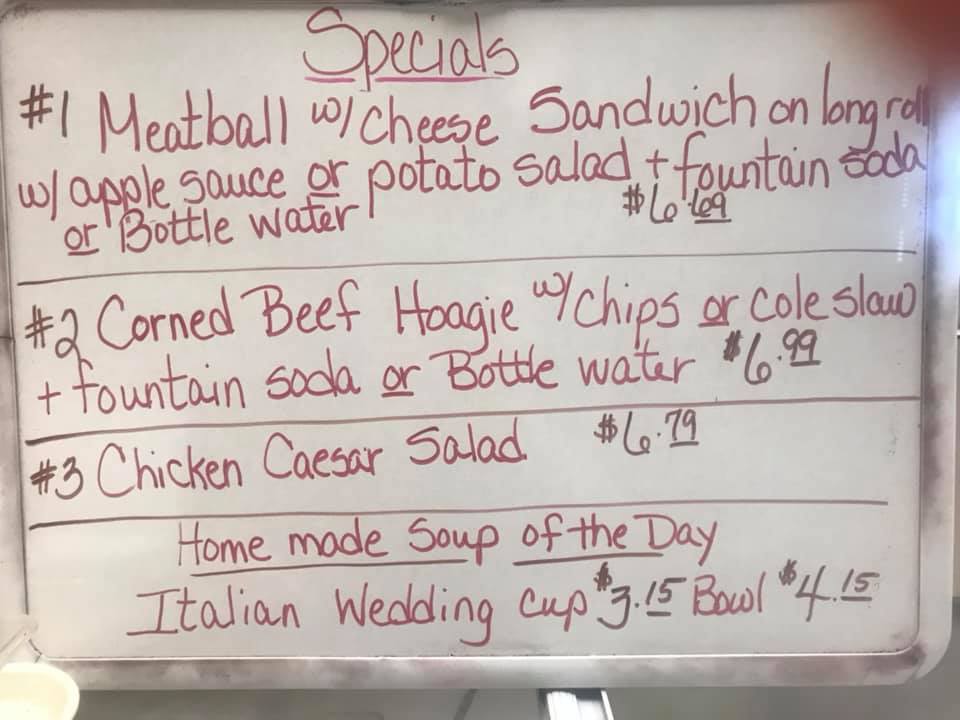 Specials
#1 Meatball w/ cheese Sandwich on long roll
w/ apple sauce or potato salad + fountain soda
or Bottle water $6.69
#2 Corned Beef Hoagie w/ chips or cole slaw
+ fountain soda or Bottle water $6.99
#3 Chicken Caesar Salad $6.79
Home made Soup of the Day
Italian Wedding cup $3.15 Bowl $4.15